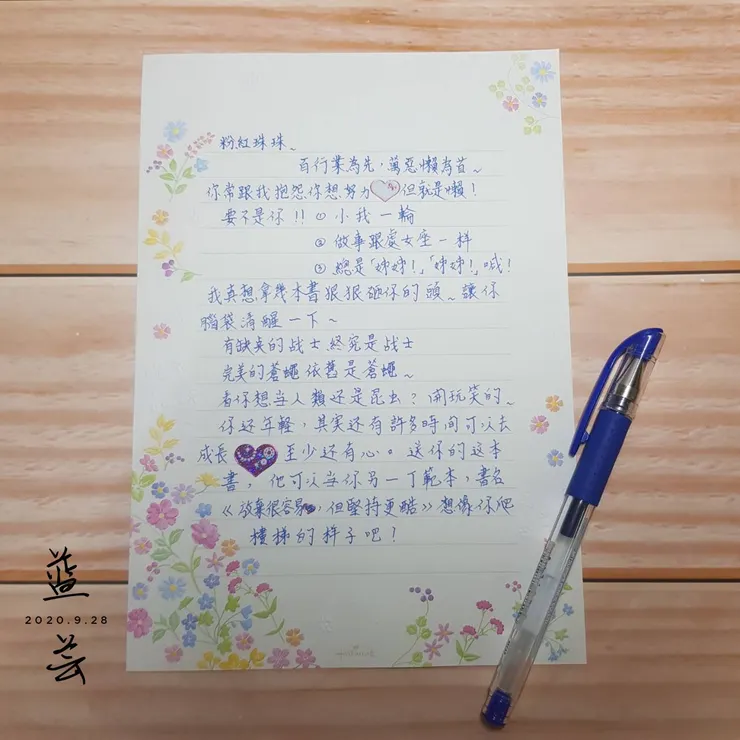 粉紅珠珠~
百行業為先，萬惡懶為首~
你常跟我抱怨你想努力 但就是懶！
要不是你!! ① 小我一輪
② 做事跟處女座一样
③ 總是「姊姊!」「姊姊!」喊!
我真想拿幾本書狠狠砸你的頭~讓你
腦袋清醒一下~
有缺点的战士終究是战士
完美的蒼蠅依舊是蒼蠅~
看你想当人類还是昆虫？開玩笑的~
你还年輕，其实还有許多時间可以去
成長 至少还有心。送你的这本
書，他可以当你另一丁範本，書名
《放棄很容易，但堅持更酷》想像你爬
樓梯的样子吧！
藍芸
2020.9.28